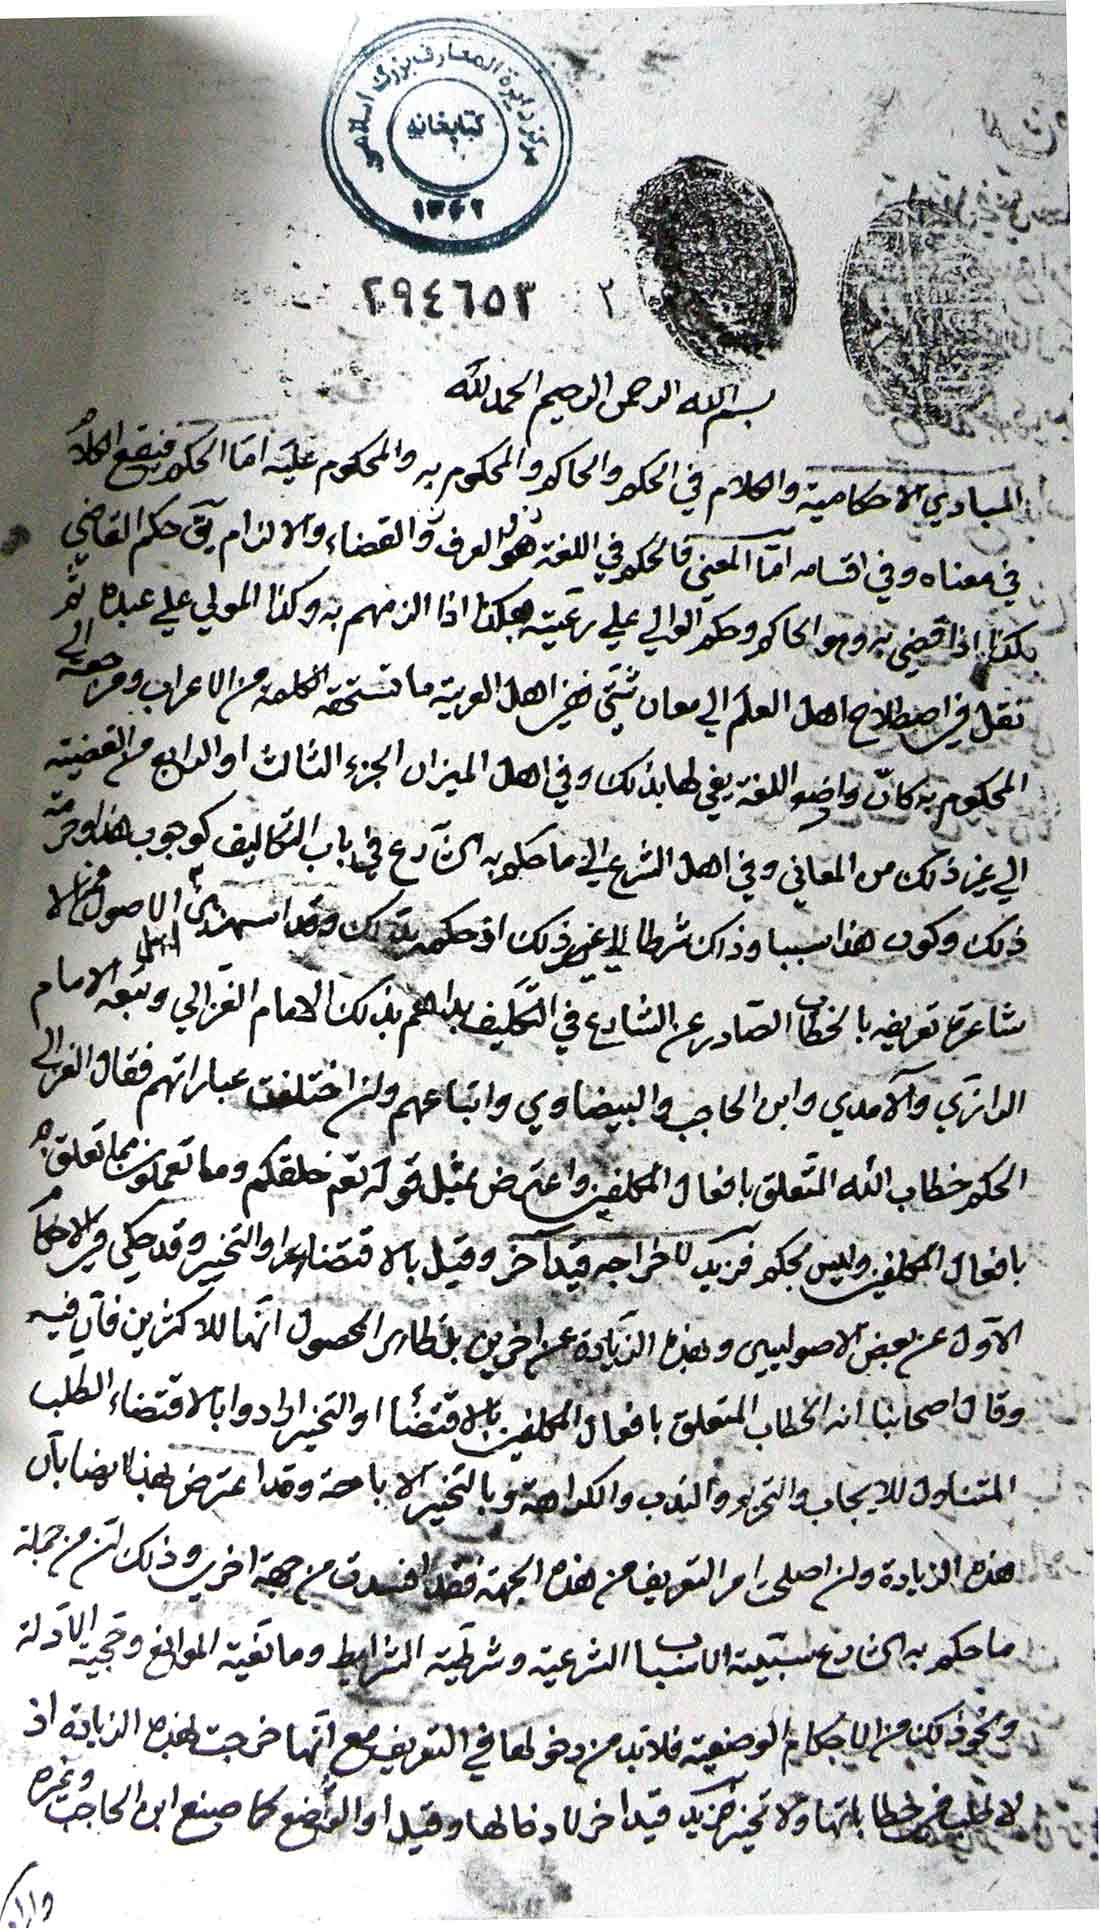 مرکز دایرة المعارف بزرگ اسلامی
کتابخانه
۱۳۶۲
۲۹٤٦٥٣ ۲
بسم الله الرحمن الرحیم الحمد لله
المبادي الاحکامیة والکلام في الحکم والحاکم والمحکوم به والمحکوم علیه اما الحکم فیقع الکلام
في معناه وفي اقسامه اما المعنی فالحکم في اللغة هو العرف والقضاء والالزام یق حکم القاضي
بکذا اذا قضی به وهو الحاکم وحکم الوالي علي رعیته بکذا اذا الزمهم به وکذا المولي علي عبده ثم
نقل في اصطلاح اهل العلم الي معان شتی ففي اهل العربیة ما تستحقه الکلمة من الاعراب ومرجعه الی
المحکوم به کانّ واضع اللغة یقي لها بذلک وفي اهل المیزان الجزء الثالث او الرابع من القضیة
الي غیر ذلک من المعاني وفي اهل الشرع الي ما حکم به الشارع في باب التکالیف کوجوب هذا وحرمة
ذلک وکون هذا سببا وذاک شرطا الي غیر ذلک اذ حکمه بذلک وقد اشتهر في الاصول الا
شاعرة تعریفه بالخطاب الصادر عن الشارع في التکلیف بداهم بذلک الامام الغزالي وتبعه الامام
الرازي والآمدي وابن الحاجب والبیضاوي واتباعهم وان اختلفت عباراتهم فقال الغزالي
الحکم خطاب الله المتعلق بافعال المکلفین واعترض بمثل قوله تعم خلقکم وما تعملون مما تعلق
بافعال المکلفین ولیس بحکم فزید لاخراجه قید آخر وقیل بالاقتضاء او التخییر وقد حکي في الاحکام
الاوّل عن بعض الاصولیین وبهذه الزیادة عن اخرین بل ظاهر المحصول انّها للاکثرین فان فیه
وقال اصحابنا انه الخطاب المتعلق بافعال المکلفین بالاقتضاء او التخییر ارادوا بالاقتضاء الطلب
المتناول للایجاب والتحریم والندب والکراهة وبالتخییر الاباحة وقد اعترض بهذا ایضا بان
هذه الزیادة وان اصلحت امر التعریف من هذه الجهة فقد افسدت من جهة اخری وذلک لان من جملة
ما حکم به الشارع سببیّة الاسباب الشرعیة وشرطیة الشرایط ومانعیة الموانع وحجیة الادلة
ونحو ذلک من الاحکام الوضعیة فلابد من دخولها في التعریف مع انّها خرجت بهذه الزیادة اذ
لا طلب في خطاباتها ولا تخییر فزید قید اخر لادخالها وقید او الوضع کما صنع ابن الحاجب وغیره